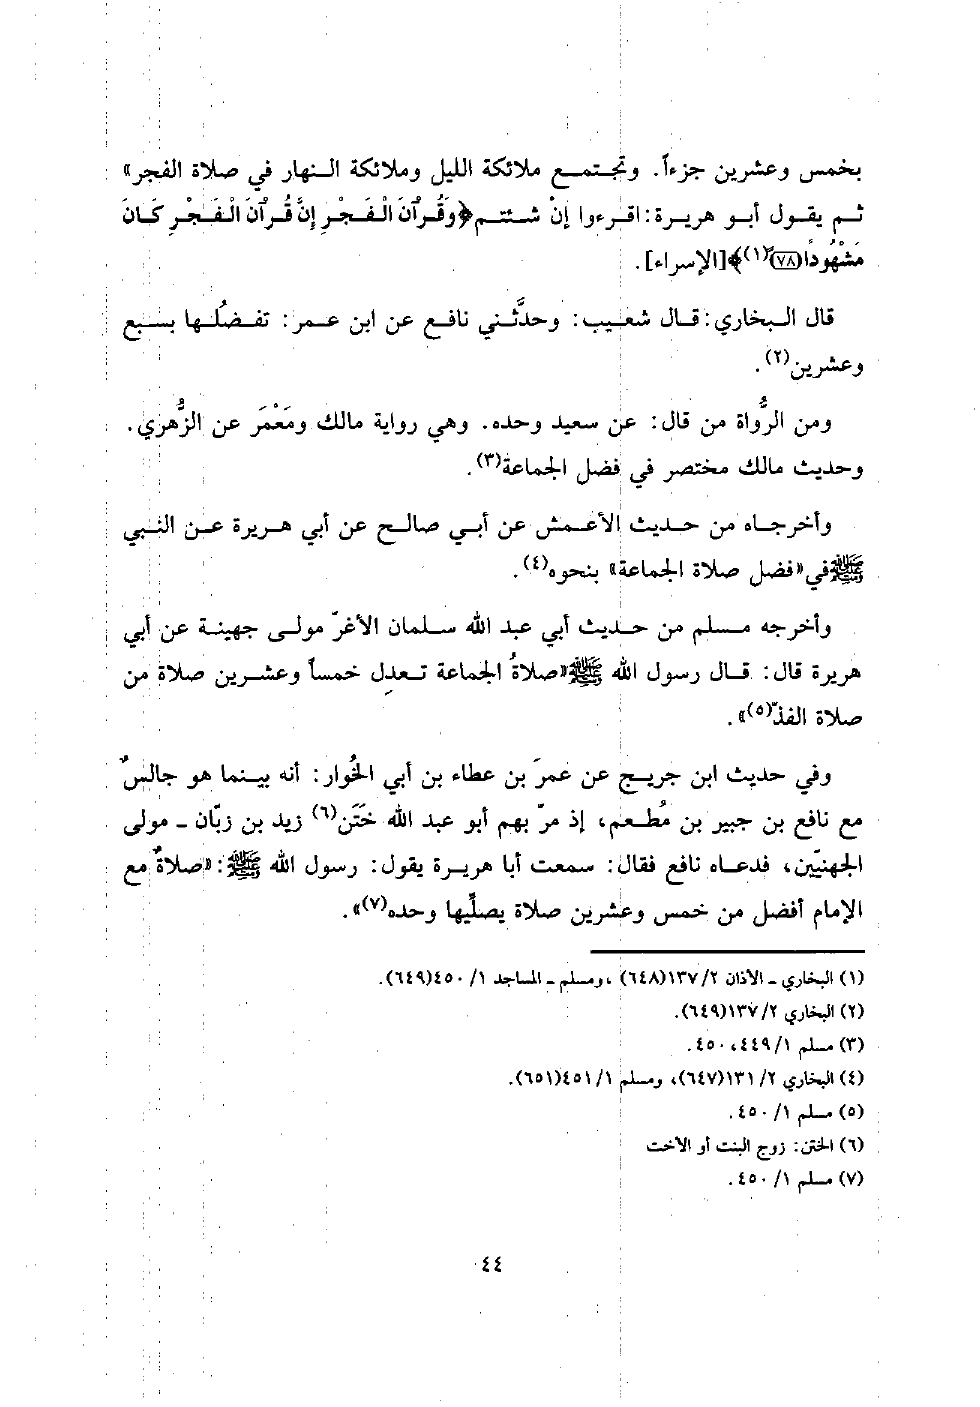 بخمس وعشرين جزءاً. وتجتمع ملائكة الليل وملائكة النهار في صلاة الفجر»
ثم يقول أبو هريرة: اقرءوا إنْ شئتم ﴿وَقُرآنَ الْفَجْرِ إِنَّ قُرآنَ الْفَجْرِ كَانَ
مَشْهُوداً (٧٨)﴾(١) [الإسراء].
قال البخاري: قال شعيب: وحدَّثني نافع عن ابن عمر: تفضُلها بسبع
وعشرين(٢).
ومن الرُّواة من قال: عن سعيد وحده. وهي رواية مالك ومَعْمَر عن الزُّهري.
وحديث مالك مختصر في فضل الجماعة(٣).
وأخرجاه من حديث الأعمش عن أبي صالح عن أبي هريرة عن النبي
ﷺ في «فضل صلاة الجماعة» بنحوه(٤).
وأخرجه مسلم من حديث أبي عبد الله سلمان الأغرّ مولى جهينة عن أبي
هريرة قال: قال رسول الله ﷺ «صلاةُ الجماعة تعدِل خمساً وعشرين صلاة من
صلاة الفذّ(٥)».
وفي حديث ابن جريج عن عمرَ بن عطاء بن أبي الخُوار: أنه بينما هو جالسٌ
مع نافع بن جبير بن مُطعم، إذ مرّ بهم أبو عبد الله خَتَن(٦) زيد بن زبّان ـ مولى
الجهنيّين، فدعاه نافع فقال: سمعت أبا هريرة يقول: رسول الله ﷺ: «صلاةٌ مع
الإمام أفضل من خمس وعشرين صلاة يصلّيها وحده(٧)».
(١) البخاري ـ الأذان ٢/ ١٣٧(٦٤٨)، ومسلم ـ المساجد ١/ ٤٥٠(٦٤٩).
(٢) البخاري ٢/ ١٣٧(٦٤٩).
(٣) مسلم ١/ ٤٤٩، ٤٥٠.
(٤) البخاري ٢/ ١٣١(٦٤٧)، ومسلم ١/ ٤٥١(٦٥١).
(٥) مسلم ١/ ٤٥٠.
(٦) الختن: زوج البنت أو الأخت
(٧) مسلم ١/ ٤٥٠.
٤٤